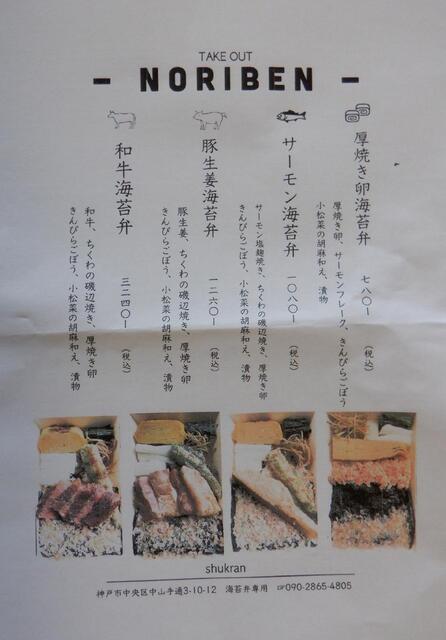 TAKE OUT
- NORIBEN -
厚焼き卵海苔弁
七八〇ー (税込)
厚焼き卵、サーモンフレーク、きんぴらごぼう
小松菜の胡麻和え、漬物
サーモン海苔弁
一〇八〇ー (税込)
サーモン塩麹焼き、ちくわの磯辺焼き、厚焼き卵
きんぴらごぼう、小松菜の胡麻和え、漬物
豚生姜海苔弁
一二六〇ー (税込)
豚生姜、ちくわの磯辺焼き、厚焼き卵
きんぴらごぼう、小松菜の胡麻和え、漬物
和牛海苔弁
三二四〇ー (税込)
和牛、ちくわの磯辺焼き、厚焼き卵
きんぴらごぼう、小松菜の胡麻和え、漬物
shukran
神戸市中央区中山手通3-10-12 海苔弁専用 ☞090-2865-4805